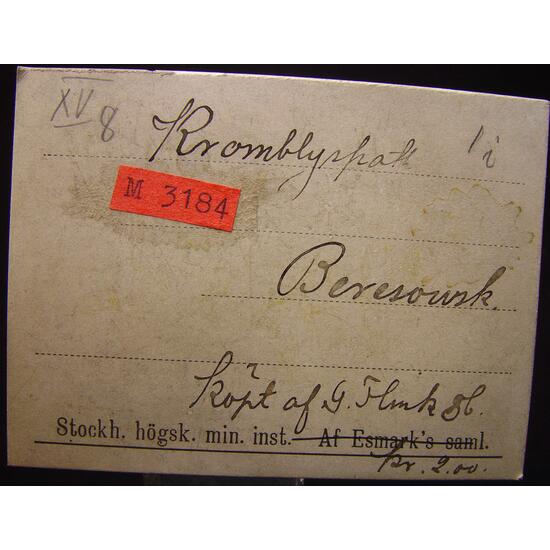 XV 8
Kromblyspat 1/i
M 3184
Beresowsk.
köpt af G. Flink
Stockh. högsk. min. inst. Af Esmark's saml.
kr. 2.00.